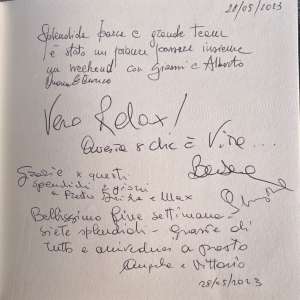 28/05/2023
Splendida barca e grande team
è stato un piacere correre insieme
un weekend con Gianni e Alberto
Vero Relax!
Questa sì che è Vita...
Grazie x questi
splendidi 2 giorni
a Pietro e Max
Bellissimo fine settimana
siete splendidi - Grazie di
tutto e arrivederci a presto
Angela e Vittorio
28/05/2023